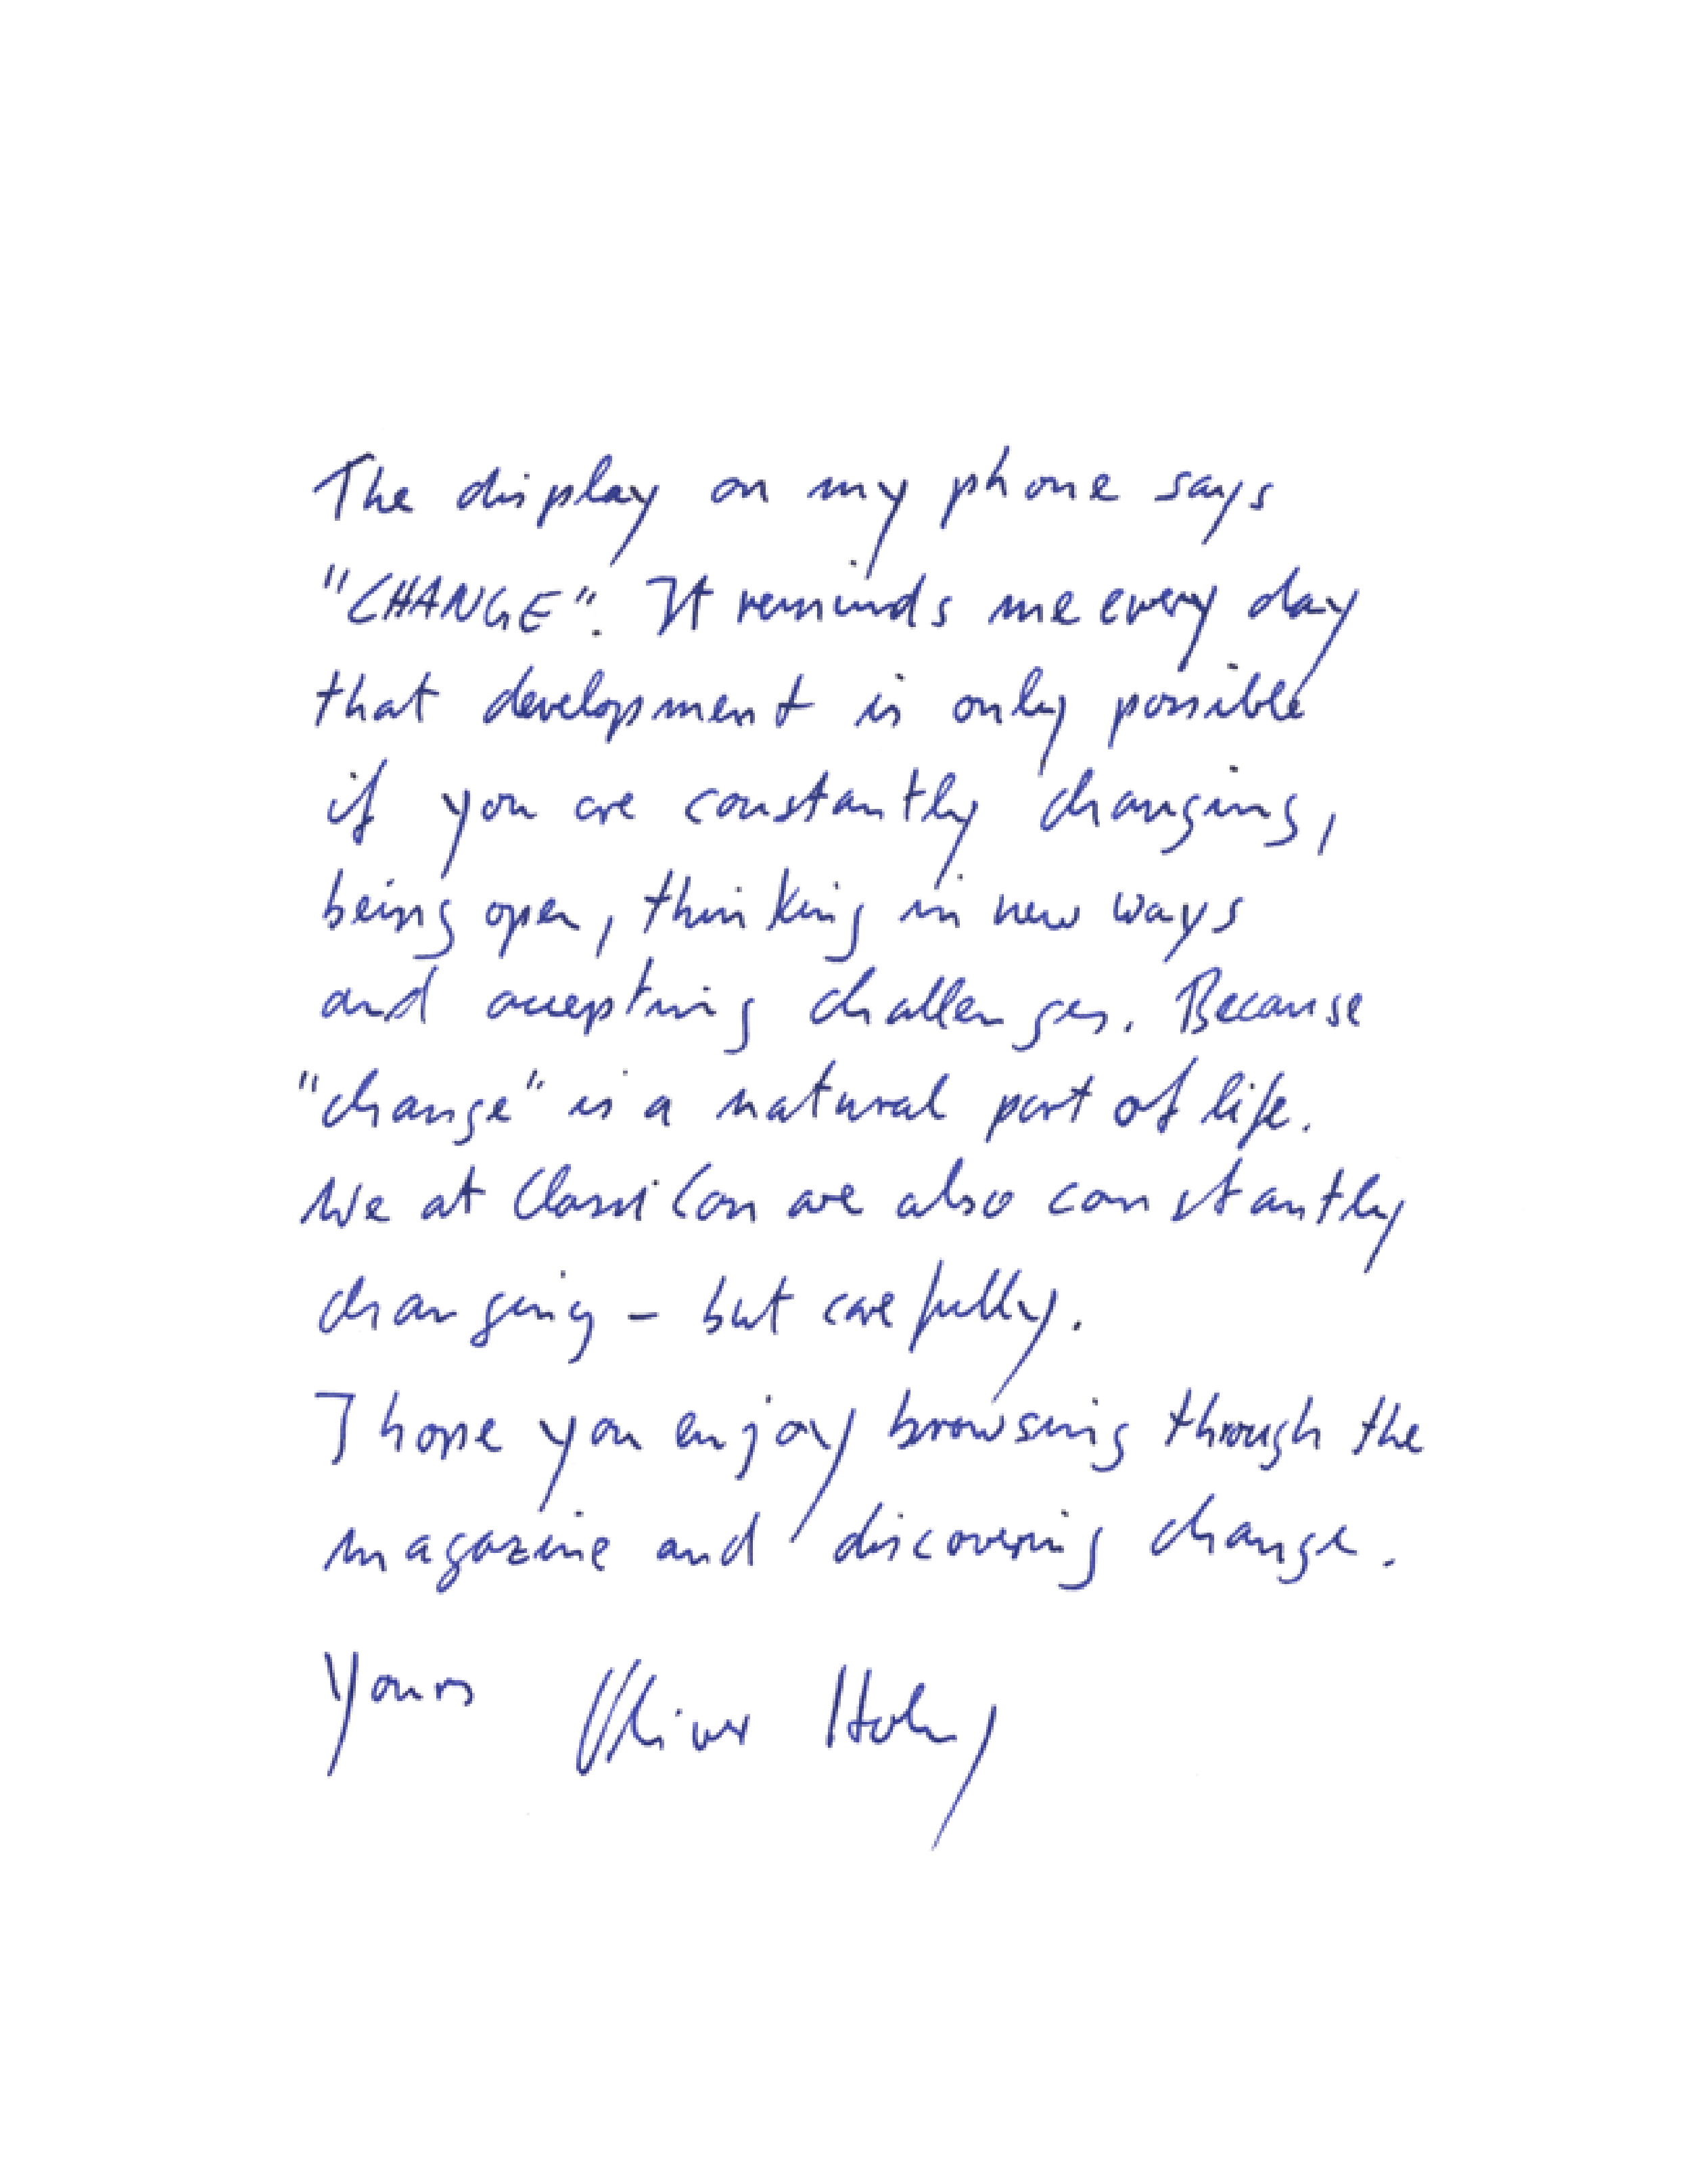 The display on my phone says
"CHANGE". It reminds me every day
that development is only possible
if you are constantly changing,
being open, thinking in new ways
and accepting challenges. Because
"change" is a natural part of life.
We at ClassiCon are also constantly
changing – but carefully.
I hope you enjoy browsing through the
magazine and discovering change.
Yours Oliver Holy